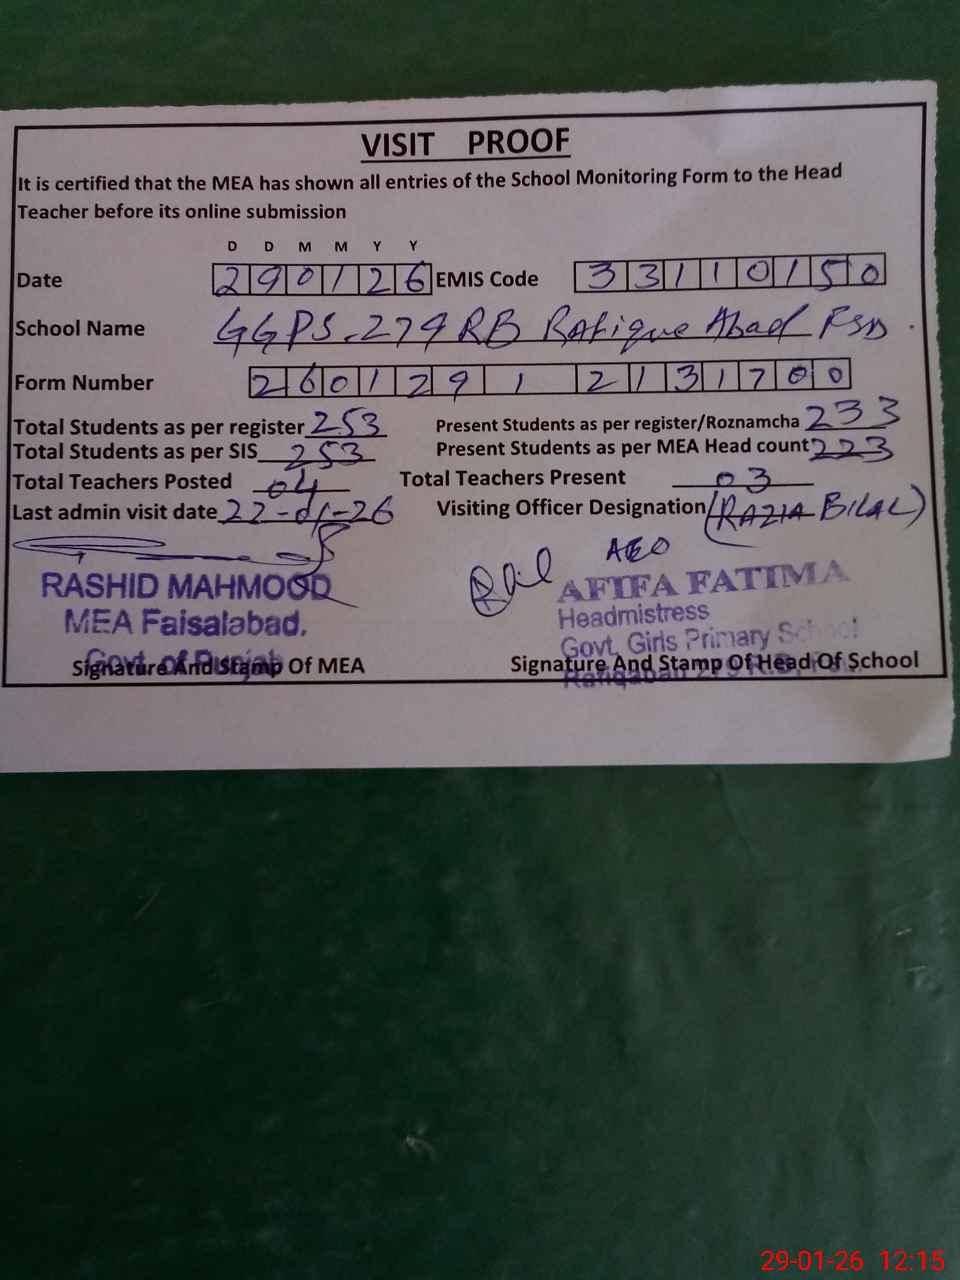 VISIT PROOF
It is certified that the MEA has shown all entries of the School Monitoring Form to the Head
Teacher before its online submission
D D M M Y Y
Date 290126 EMIS Code 33110150
School Name GGPS-279 RB Rafique Abad FSD
Form Number 260129 1 2131700
Total Students as per register 253 Present Students as per register/Roznamcha 233
Total Students as per SIS 253 Present Students as per MEA Head count 223
Total Teachers Posted 04 Total Teachers Present 03
Last admin visit date 22-01-26 Visiting Officer Designation (RAZIA BILAL)
AEO
RASHID MAHMOOD
MEA Faisalabad.
Govt. of Punjab
Signature And Stamp Of MEA
AFIFA FATIMA
Headmistress
Govt. Girls Primary School
Signature And Stamp Of Head Of School
29-01-26 12:15